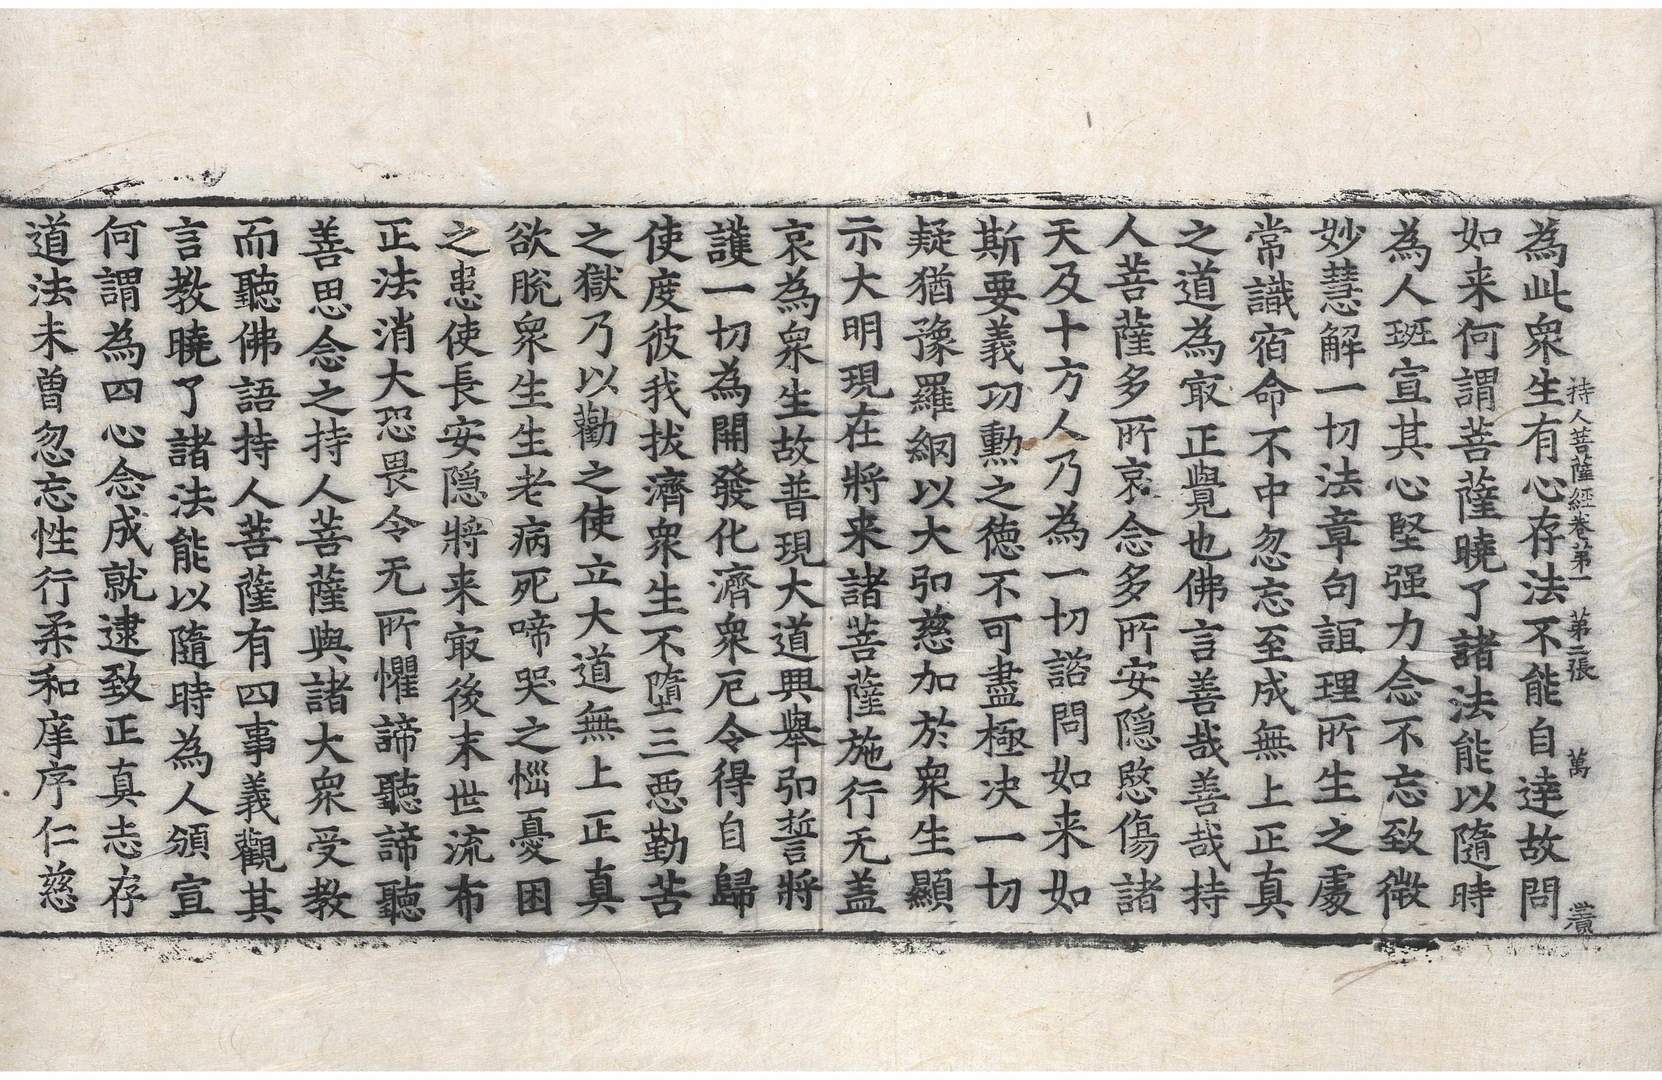 持人菩薩經卷第一　第二張　萬
為此衆生有心存法不能自達故問
如来何謂菩薩曉了諸法能以隨時
為人班宣其心堅强力念不忘致微
妙慧解一切法章句誼理所生之處
常識宿命不中忽忘至成無上正真
之道為㝡正覺也佛言善哉善哉持
人菩薩多所哀念多所安隱愍傷諸
天及十方人乃為一切諮問如来如
斯要義功勳之德不可盡極决一切
疑猶豫羅網以大弘慈加於衆生顯
示大明現在將来諸菩薩施行无盖
哀為衆生故普現大道興舉弘誓將
護一切為開發化濟衆厄令得自歸
使度彼我拔濟衆生不墮三惡勤苦
之獄乃以勸之使立大道無上正真
欲脫衆生生老病死啼哭之惱憂困
之患使長安隱將来㝡後末世流布
正法消大恐畏令无所懼諦聽諦聽
善思念之持人菩薩與諸大衆受教
而聽佛語持人菩薩有四事義觀其
言教曉了諸法能以隨時為人頒宣
何謂為四心念成就逮致正真志存
道法未曾忽忘性行柔和庠序仁慈